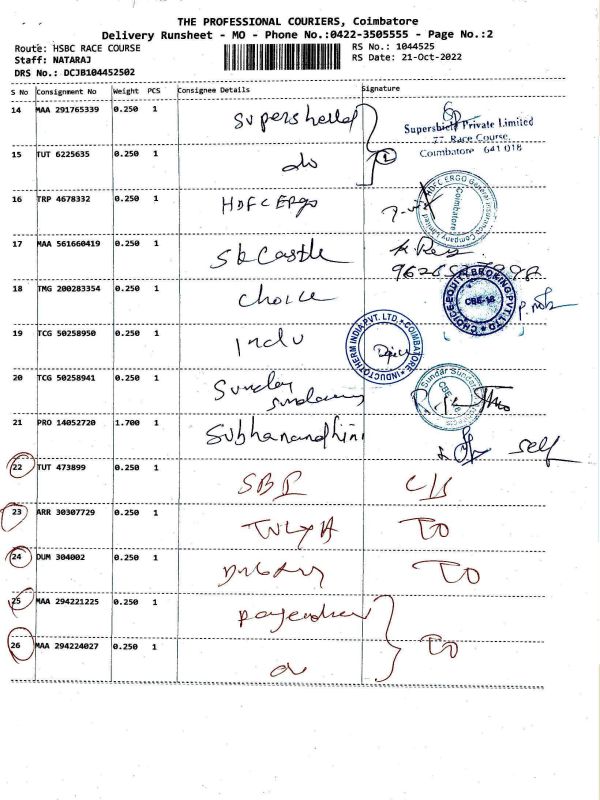 THE PROFESSIONAL COURIERS, Coimbatore
Delivery Runsheet - MO - Phone No.:0422-3505555 - Page No.:2
Route: HSBC RACE COURSE
RS No.: 1044525
Staff: NATARAJ
RS Date: 21-Oct-2022
DRS No.: DCJB104452502
S No Consignment No Weight PCS Consignee Details Signature
14 MAA 291765339 0.250 1
Supershield Private Limited
77, Race Course,
Coimbatore 641 018
15 TUT 6225635 0.250 1 do 1
16 TRP 4678332 0.250 1 HDFC ERgo
HDFC ERGO General Insurance Company Limited
Coimbatore
17 MAA 561660419 0.250 1 Sk Castle
18 TMG 200283354 0.250 1 choice
CHOICE EQUITY BROKING PVT. LTD.
CBE-18
19 TCG 50258950 0.250 1 Indu
INDUCTOTHERM INDIA PVT. LTD. COIMBATORE
20 TCG 50258941 0.250 1 Sundar
CBE-18
21 PRO 14052720 1.700 1 Subhanandhini self
22 TUT 473899 0.250 1 SBI
23 ARR 30307729 0.250 1 TO
24 DUM 304002 0.250 1 TO
25 MAA 294221225 0.250 1
26 MAA 294224027 0.250 1 TO